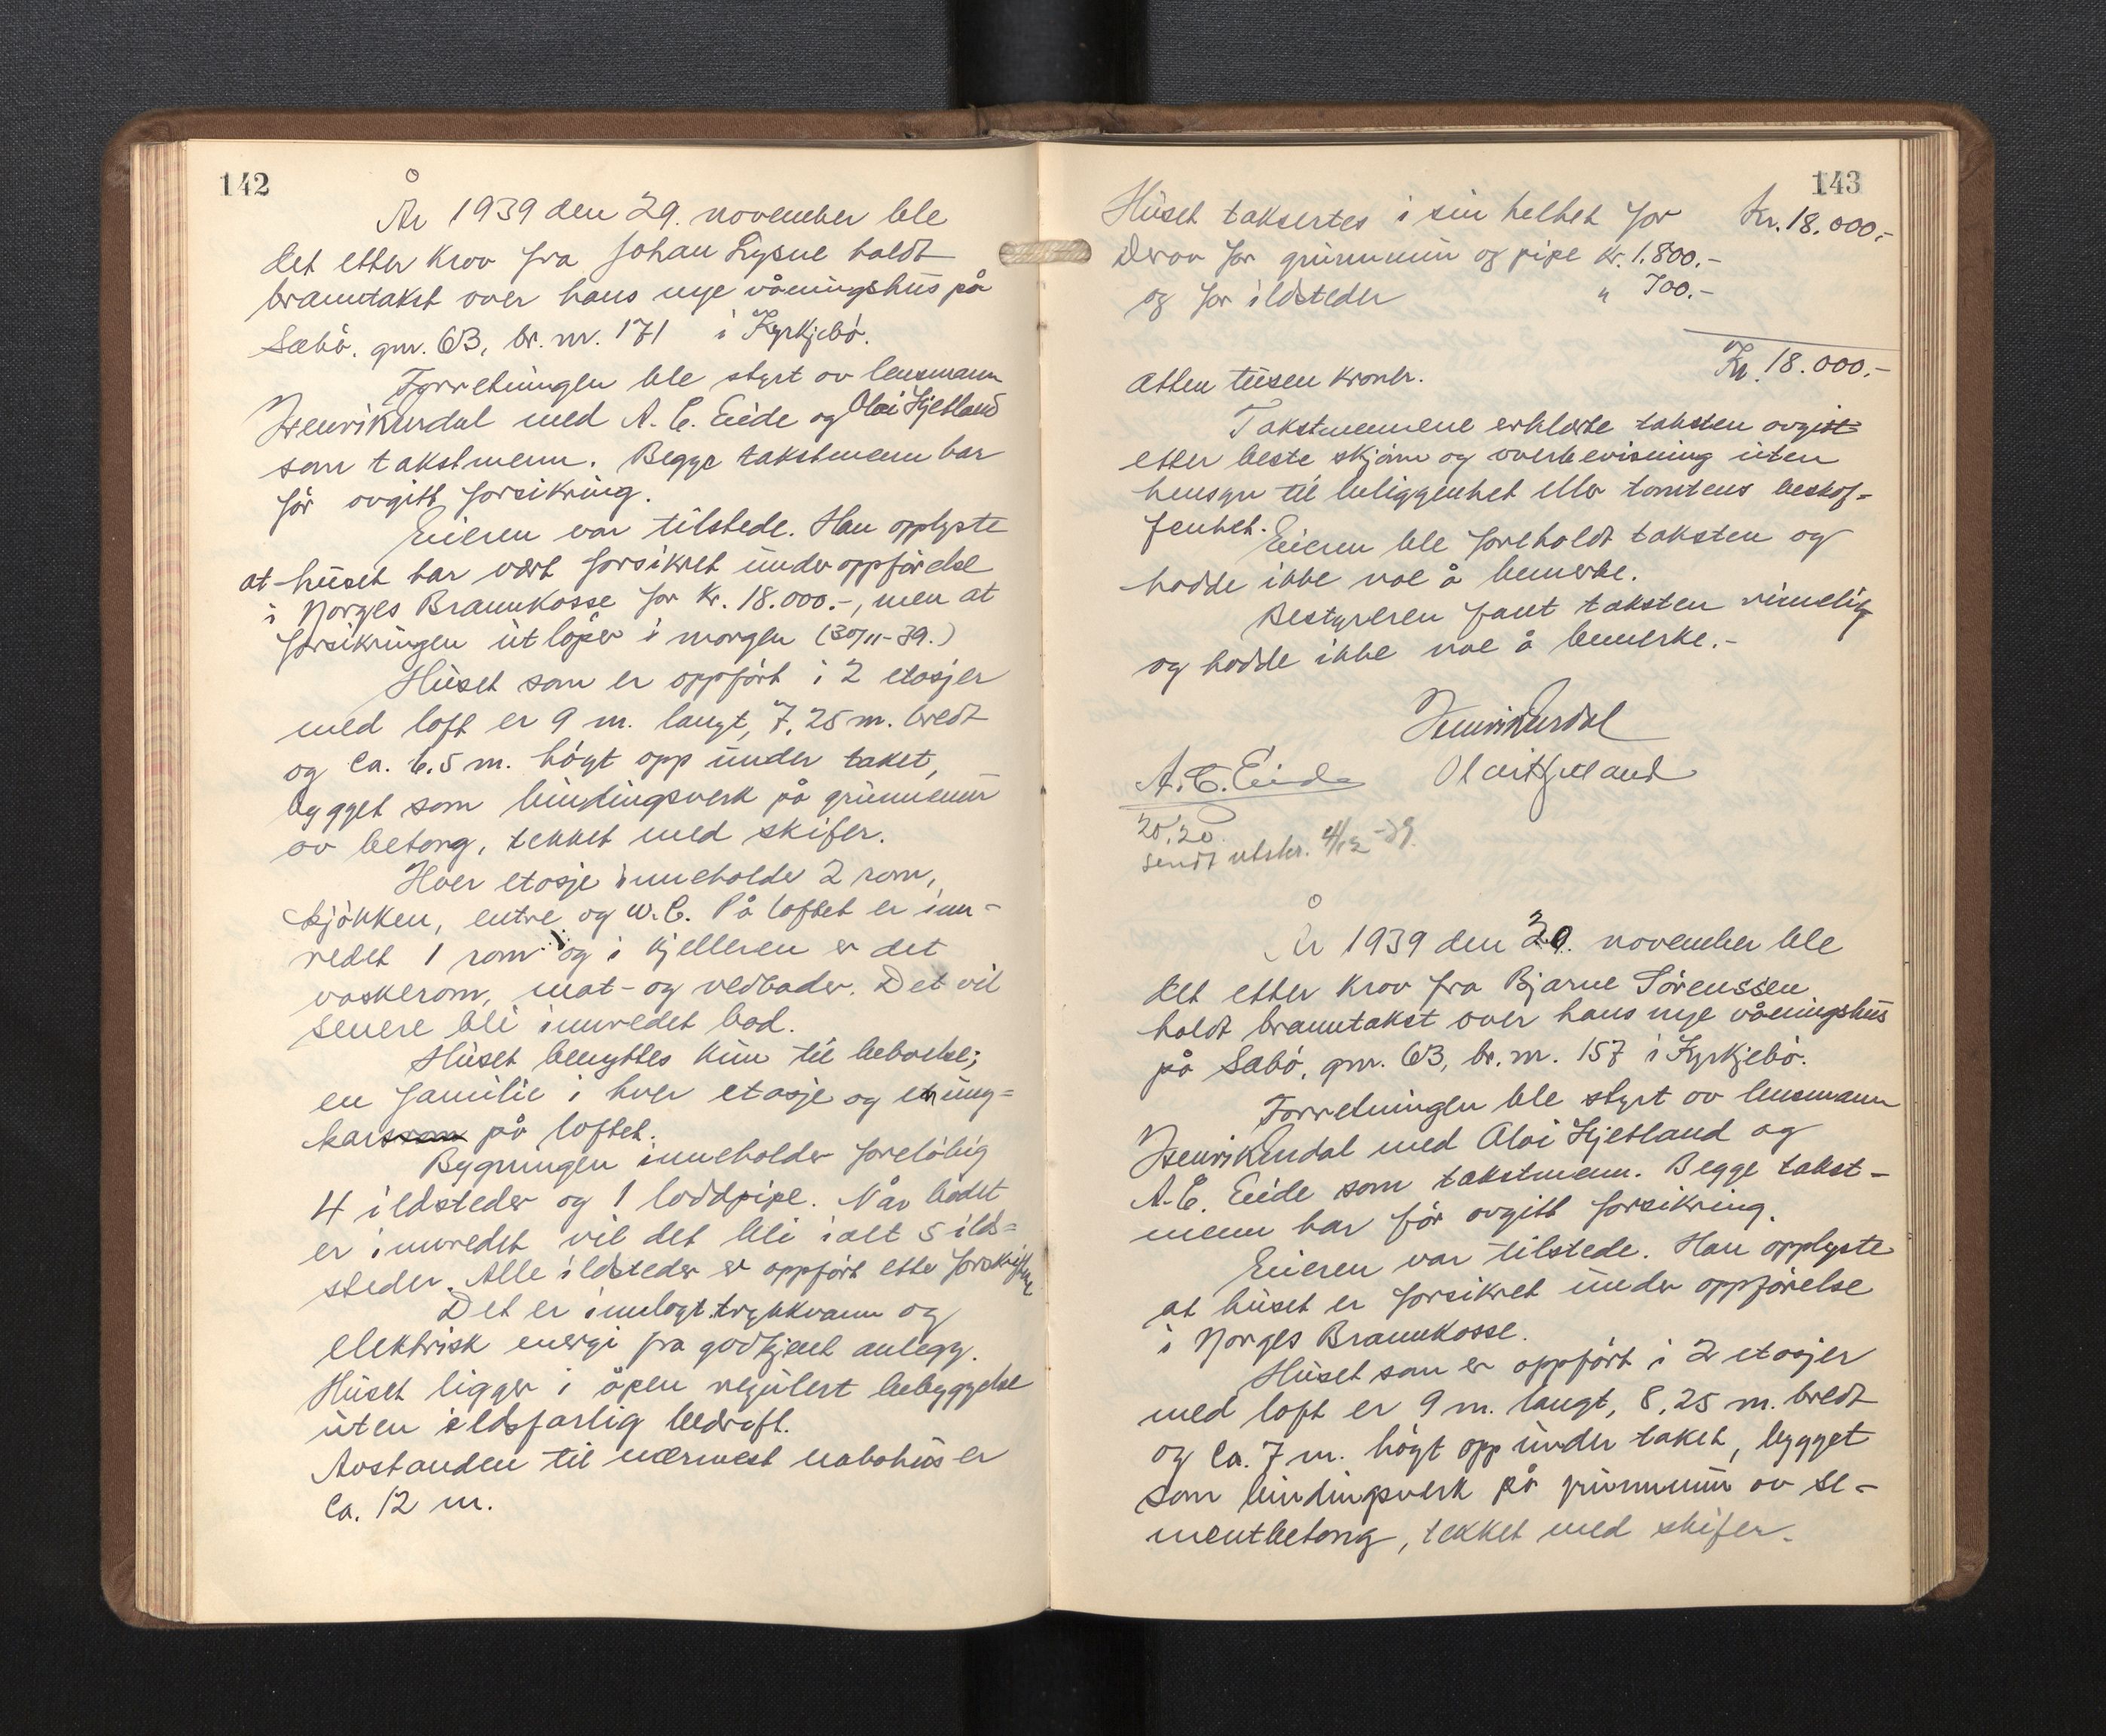 142
År 1939 den 29. november ble
det etter krav fra Johan Lysne holdt
branntakst over hans nye våningshus på
Sæbö, gnr. 63, br. nr. 171 i Kyrkjebö.
Forretningen ble styrt av lensmann
Henrik Urdal med A. C. Eide og Olai Hjetland
som takstmenn. Begge takstmenn har
för avgitt forsikring.
Eieren var tilstede. Han opplyste
at huset har vært forsikret under oppförelse
i Norges Brannkasse for kr. 18.000.-, men at
forsikringen utlöper i morgen (30/11-39.)
Huset som er oppfört i 2 etasjer
med loft er 9 m. langt, 7,25 m. bredt
og ca. 6.5 m. högt opp under taket,
bygget som bindingsverk på grunnmur
av betong, tekket med skifer.
Hver etasje inneholder 2 rom,
kjökken, entre og W.C. På loftet er inn-
redet 1 rom og i kjelleren er det
vaskerom, mat- og vedboder. Det vil
senere bli innredet bad.
Huset benyttes kun til beboelse;
en familie i hver etasje og en ung-
karsrom på loftet.
Bygningen inneholder forelöbig
4 ildsteder og 1 loddpipe. Når badet
er innredet vil det bli ialt 5 ild-
steder. Alle ildsteder er oppfört etter forskriftene
Det er innlagt trykkvann og
elektrisk energi fra godkjent anlegg.
Huset ligger i åpen regulert bebyggelse
uten ildsfarlig bedrift.
Avstanden til nærmest nabohus er
ca. 12 m.
143
Huset taksertes i sin helhet for Kr. 18.000.-
Derav for grunnmur og pipe kr. 1.800.-
og for ildsteder " 700.-
Kr. 18.000.-
Atten tusen kroner.
Takstmennene erklærte taksten avgitt
etter beste skjönn og overbevisning uten
hensyn til beliggenhet eller tomtens beskaf-
fenhet.
Eieren ble foreholdt taksten og
hadde ikke noe å bemerke.
Bestyreren fant taksten rimelig
og hadde ikke noe å bemerke.-
Henrik Urdal
A. C. Eide Olai Hjetland
20,20.
Sendt utskr. 4/12-39.
År 1939 den 29. november ble
det etter krav fra Bjarne Sörenssen
holdt branntakst over hans nye våningshus
på Sæbö, gnr. 63, br. nr. 157 i Kyrkjebö.
Forretningen ble styrt av lensmann
Henrik Urdal med Olai Hjetland og
A. C. Eide som takstmenn. Begge takst-
menn har för avgitt forsikring.
Eieren var tilstede. Han opplyste
at huset er forsikret under oppförelse
i Norges Brannkasse.
Huset som er oppfört i 2 etasjer
med loft er 9 m. langt, 8,25 m. bredt
og ca. 7 m. högt opp under taket, bygget
som bindingsverk på grunnmur av se-
mentbetong, tekket med skifer.